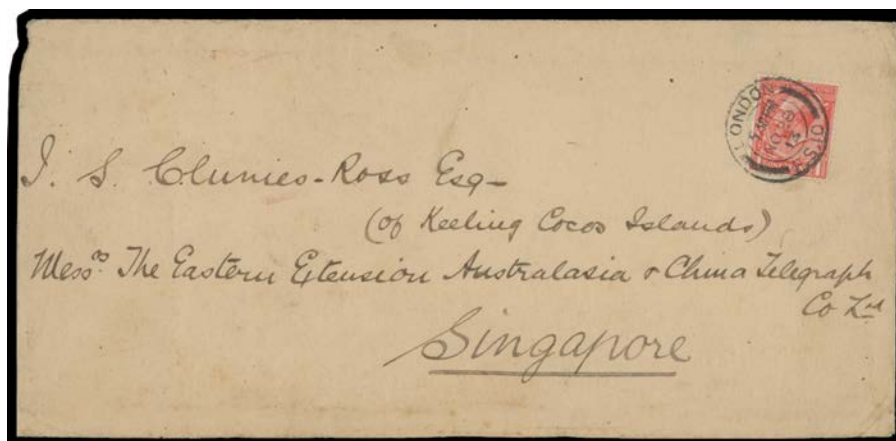 J. S. Clunies-Ross Esq-
(of Keeling Cocos Islands)
Messrs The Eastern Extension Australasia & China Telegraph
Co Ltd
Singapore
LONDON
NO 28
13